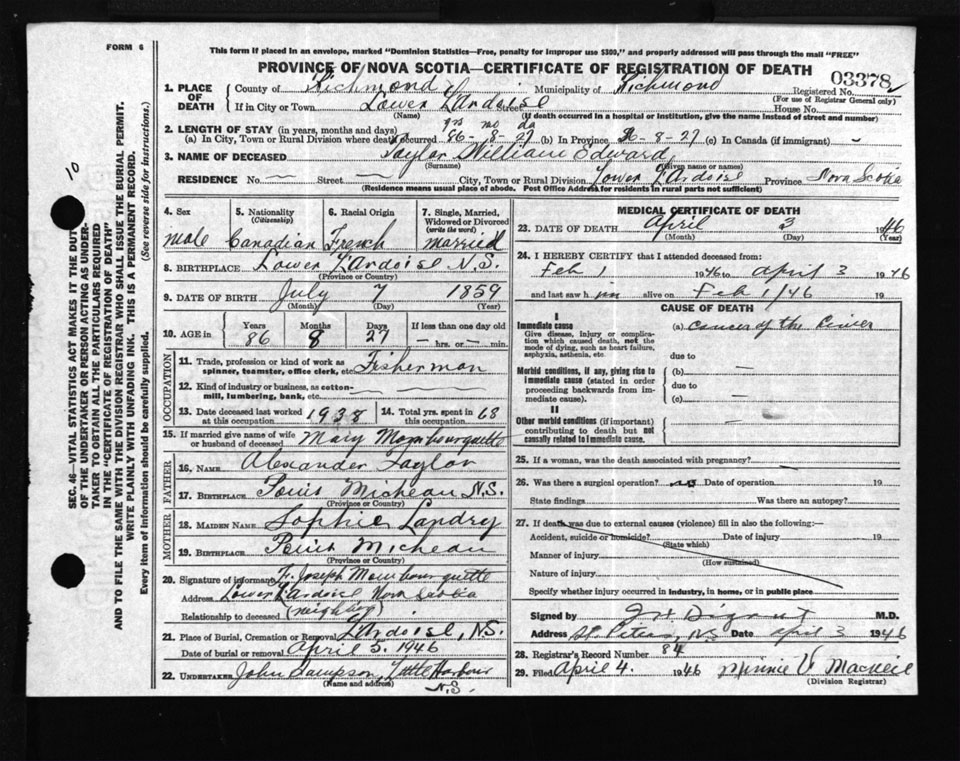 FORM 6
This form if placed in an envelope, marked "Dominion Statistics—Free, penalty for improper use $300," and properly addressed will pass through the mail "FREE"
PROVINCE OF NOVA SCOTIA—CERTIFICATE OF REGISTRATION OF DEATH
03378
1. PLACE OF DEATH
County of Richmond Municipality of Richmond Registered No.
(For use of Registrar General only)
If in City or Town Lower L'Ardoise Street House No.
(Name) (If death occurred in a hospital or institution, give the name instead of street and number)
yrs mo da
2. LENGTH OF STAY (in years, months and days)
(a) In City, Town or Rural Division where death occurred 86-8-27 (b) In Province 86-8-27 (c) In Canada (if immigrant) -
3. NAME OF DECEASED Taylor William Edward
(Surname) (Given name or names)
RESIDENCE No. — Street — City, Town or Rural Division Lower L'Ardoise Province Nova Scotia
(Residence means usual place of abode. Post Office Address for residents in rural parts not sufficient)
4. Sex
male
5. Nationality (Citizenship)
Canadian
6. Racial Origin
French
7. Single, Married, Widowed or Divorced (write the word)
married
8. BIRTHPLACE Lower L'Ardoise N.S.
(Province or Country)
9. DATE OF BIRTH July 7 1859
(Month) (Day) (Year)
10. AGE in Years Months Days If less than one day old
86 8 27 — hrs. or — min.
OCCUPATION
11. Trade, profession or kind of work as spinner, teamster, office clerk, etc. Fisherman
12. Kind of industry or business, as cotton-mill, lumbering, bank, etc.
13. Date deceased last worked at this occupation 1938
14. Total yrs. spent in this occupation 68
15. If married give name of wife or husband of deceased Mary Mombourquette
FATHER
16. NAME Alexander Taylor
17. BIRTHPLACE Micheau N.S.
(Province or Country)
MOTHER
18. MAIDEN NAME Sophie Landry
19. BIRTHPLACE Micheau
(Province or Country)
20. Signature of informant F. Joseph Mombourquette
Address Lower L'Ardoise Nova Scotia
Relationship to deceased (neighbor)
21. Place of Burial, Cremation or Removal L'Ardoise, N.S.
Date of burial or removal April 5. 1946
22. UNDERTAKER John Sampson, Little Harbour
(Name and address) N.S.
MEDICAL CERTIFICATE OF DEATH
23. DATE OF DEATH April 3 1946
(Month) (Day) (Year)
24. I HEREBY CERTIFY that I attended deceased from:
Feb 1 1946 to April 3 1946
and last saw him alive on Feb 1/46 19
CAUSE OF DEATH
I
Immediate cause
Give disease, injury or complication which caused death, not the mode of dying, such as heart failure, asphyxia, asthenia, etc.
(a) cancer of the Liver
due to
Morbid conditions, if any, giving rise to immediate cause (stated in order proceeding backwards from immediate cause).
(b) —
due to
(c) —
II
Other morbid conditions (if important) contributing to death but not causally related to immediate cause.
—
25. If a woman, was the death associated with pregnancy?
26. Was there a surgical operation? no Date of operation 19
State findings Was there an autopsy?
27. If death was due to external causes (violence) fill in also the following:—
Accident, suicide or homicide? Date of injury 19
(State which)
Manner of injury
(How sustained)
Nature of injury
Specify whether injury occurred in industry, in home, or in public place
Signed by M.D.
Address St. Peters, NS Date April 3 1946
28. Registrar's Record Number 84
29. Filed April 4. 1946 Minnie V MacNeil
(Division Registrar)
10
SEC. 46—VITAL STATISTICS ACT MAKES IT THE DUTY
OF THE UNDERTAKER OR PERSON ACTING AS UNDER-
TAKER TO OBTAIN ALL THE PARTICULARS REQUIRED
IN THE "CERTIFICATE OF REGISTRATION OF DEATH"
AND TO FILE THE SAME WITH THE DIVISION REGISTRAR WHO SHALL ISSUE THE BURIAL PERMIT.
WRITE PLAINLY WITH UNFADING INK. THIS IS A PERMANENT RECORD.
Every item of information should be carefully supplied. (See reverse side for instructions.)